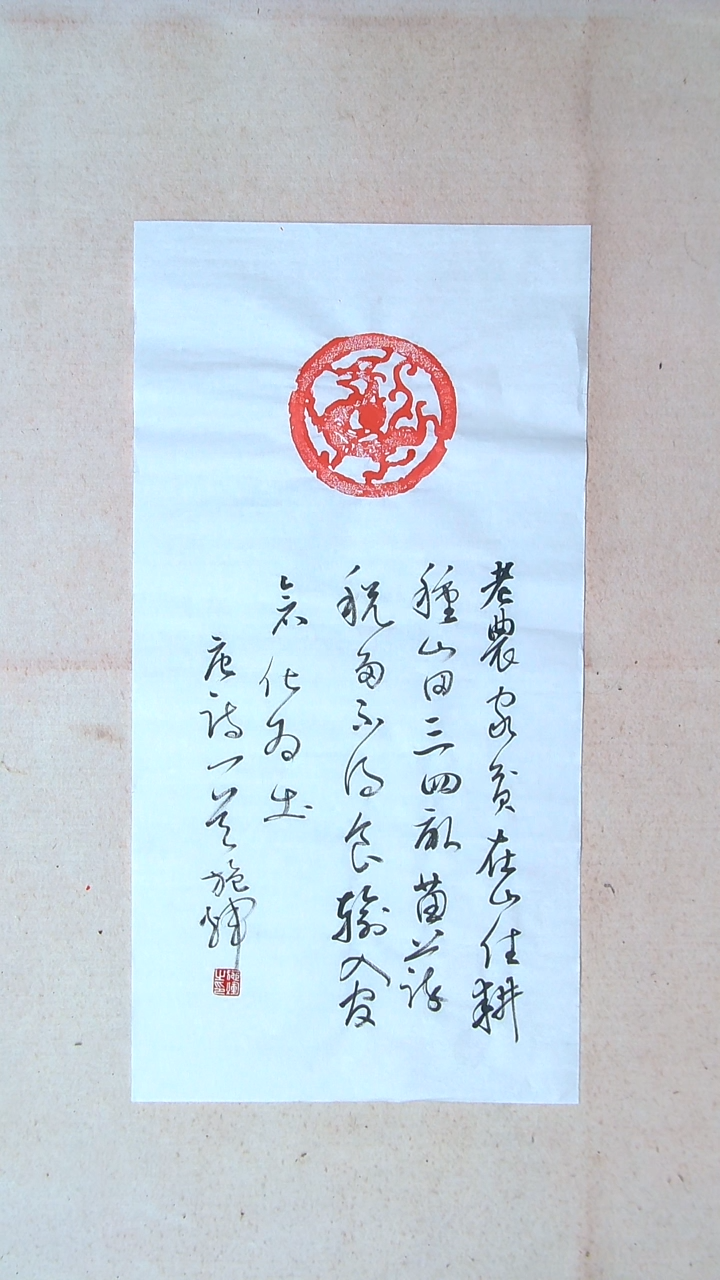 老農家貧在山住耕
種山田三四畝苗疎
稅多不得食輸入官
倉化為土
唐詩一首施